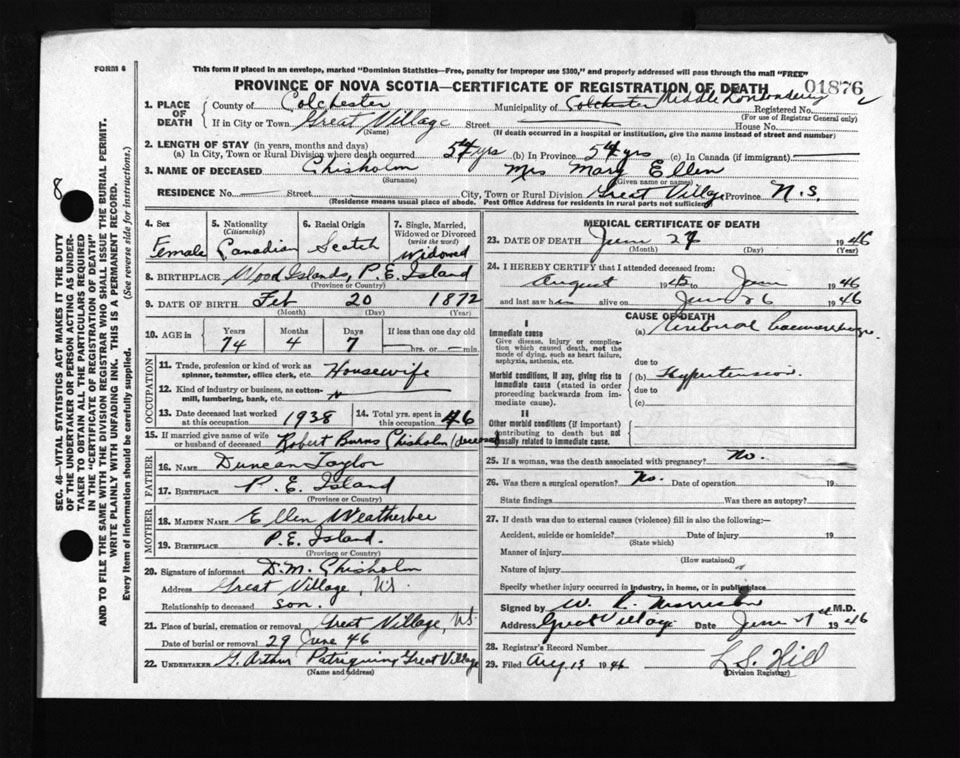 FORM 6
This form if placed in an envelope, marked "Dominion Statistics—Free, penalty for improper use $300," and properly addressed will pass through the mail "FREE"
PROVINCE OF NOVA SCOTIA—CERTIFICATE OF REGISTRATION OF DEATH 01876
1. PLACE OF DEATH County of Colchester Municipality of Colchester Middle Londonderry Registered No.
(For use of Registrar General only)
If in City or Town Great Village Street House No.
(Name) (If death occurred in a hospital or institution, give the name instead of street and number)
2. LENGTH OF STAY (in years, months and days)
(a) In City, Town or Rural Division where death occurred 54 yrs (b) In Province 54 yrs (c) In Canada (if immigrant)
3. NAME OF DECEASED Chisholm Mrs Mary Ellen
(Surname) (Given name or names)
RESIDENCE No. Street City, Town or Rural Division Great Village Province N.S.
(Residence means usual place of abode. Post Office Address for residents in rural parts not sufficient)
4. Sex Female
5. Nationality (Citizenship) Canadian
6. Racial Origin Scotch
7. Single, Married, Widowed or Divorced (write the word) Widowed
8. BIRTHPLACE Wood Islands, P.E. Island
(Province or Country)
9. DATE OF BIRTH Feb 20 1872
(Month) (Day) (Year)
10. AGE in Years 74 Months 4 Days 7 If less than one day old hrs. or min.
OCCUPATION
11. Trade, profession or kind of work as spinner, teamster, office clerk, etc. Housewife
12. Kind of industry or business, as cotton-mill, lumbering, bank, etc. "
13. Date deceased last worked at this occupation 1938
14. Total yrs. spent in this occupation 46
15. If married give name of wife or husband of deceased Robert Burns Chisholm (deceased)
FATHER
16. NAME Duncan Taylor
17. BIRTHPLACE P.E. Island
(Province or Country)
MOTHER
18. MAIDEN NAME Ellen Weatherbee
19. BIRTHPLACE P.E. Island.
(Province or Country)
20. Signature of informant D.M. Chisholm
Address Great Village, NS
Relationship to deceased son.
21. Place of burial, cremation or removal Great Village, NS.
Date of burial or removal 29 June 46
22. UNDERTAKER G. Arthur Patriquin, Great Village
(Name and Address)
MEDICAL CERTIFICATE OF DEATH
23. DATE OF DEATH June 27 1946
(Month) (Day) (Year)
24. I HEREBY CERTIFY that I attended deceased from:
August 1945 to June 1946
and last saw her alive on June 26 1946
CAUSE OF DEATH
I
Immediate cause (a) Cerebral haemorrhage
Give disease, injury or complication which caused death, not the mode of dying, such as heart failure, asphyxia, asthenia, etc.
due to
Morbid conditions, if any, giving rise to immediate cause (stated in order proceeding backwards from immediate cause).
(b) Hypertension
due to
(c)
II
Other morbid conditions (if important) contributing to death but not causally related to immediate cause.
25. If a woman, was the death associated with pregnancy? No.
26. Was there a surgical operation? No. Date of operation 19
State findings Was there an autopsy?
27. If death was due to external causes (violence) fill in also the following:—
Accident, suicide or homicide? Date of injury 19
(State which)
Manner of injury
(How sustained)
Nature of injury
Specify whether injury occurred in industry, in home, or in public place
Signed by W. R. Morrison M.D.
Address Great Village Date June 27th 1946
28. Registrar's Record Number
29. Filed Aug 13 1946 L S. Hill
(Division Registrar)
8
SEC. 46—VITAL STATISTICS ACT MAKES IT THE DUTY
OF THE UNDERTAKER OR PERSON ACTING AS UNDER-
TAKER TO OBTAIN ALL THE PARTICULARS REQUIRED
IN THE "CERTIFICATE OF REGISTRATION OF DEATH"
AND TO FILE THE SAME WITH THE DIVISION REGISTRAR WHO SHALL ISSUE THE BURIAL PERMIT.
WRITE PLAINLY WITH UNFADING INK. THIS IS A PERMANENT RECORD.
Every item of information should be carefully supplied. (See reverse side for instructions.)